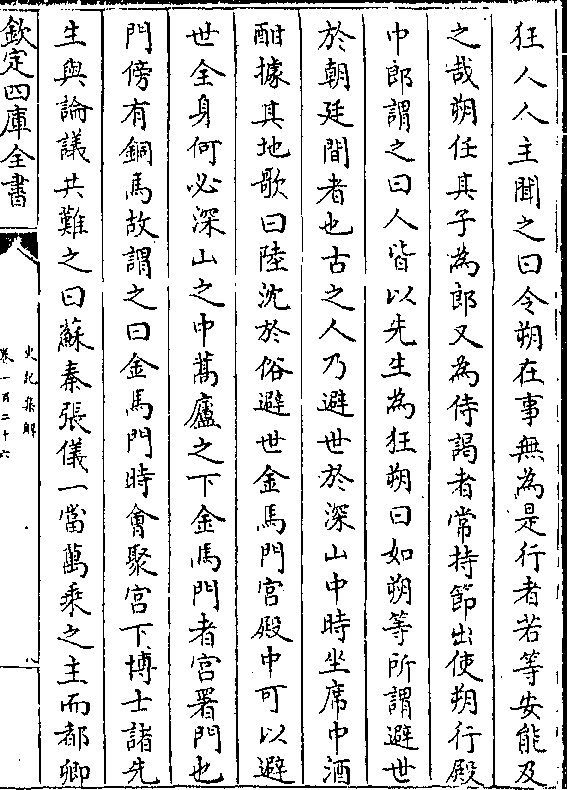 狂人人主聞之曰令朔在事無為是行者若等安能及
之哉朔任其子為郎又為侍謁者常持節出使朔行殿
中郎謂之曰人皆以先生為狂朔曰如朔等所謂避世
於朝廷間者也古之人乃避世於深山中時坐席中酒
酣據其地歌曰陸沈於俗避世金馬門宫殿中可以避
世全身何必深山之中蒿廬之下金馬門者宫署門也
門傍有銅馬故謂之曰金馬門時㑹聚宫下博士諸先
生與論議共難之曰蘇秦張儀一當萬乘之主而都卿
欽定四庫全書
史記集解
卷一百二十六
八